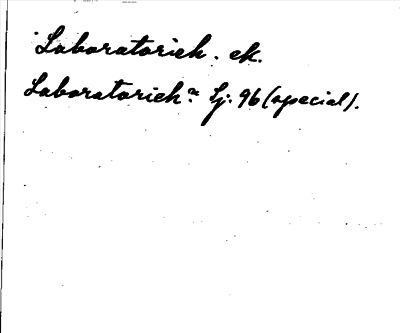 Laboratorieh. ek.
Laboratorieh:a Lj. 96 (special).